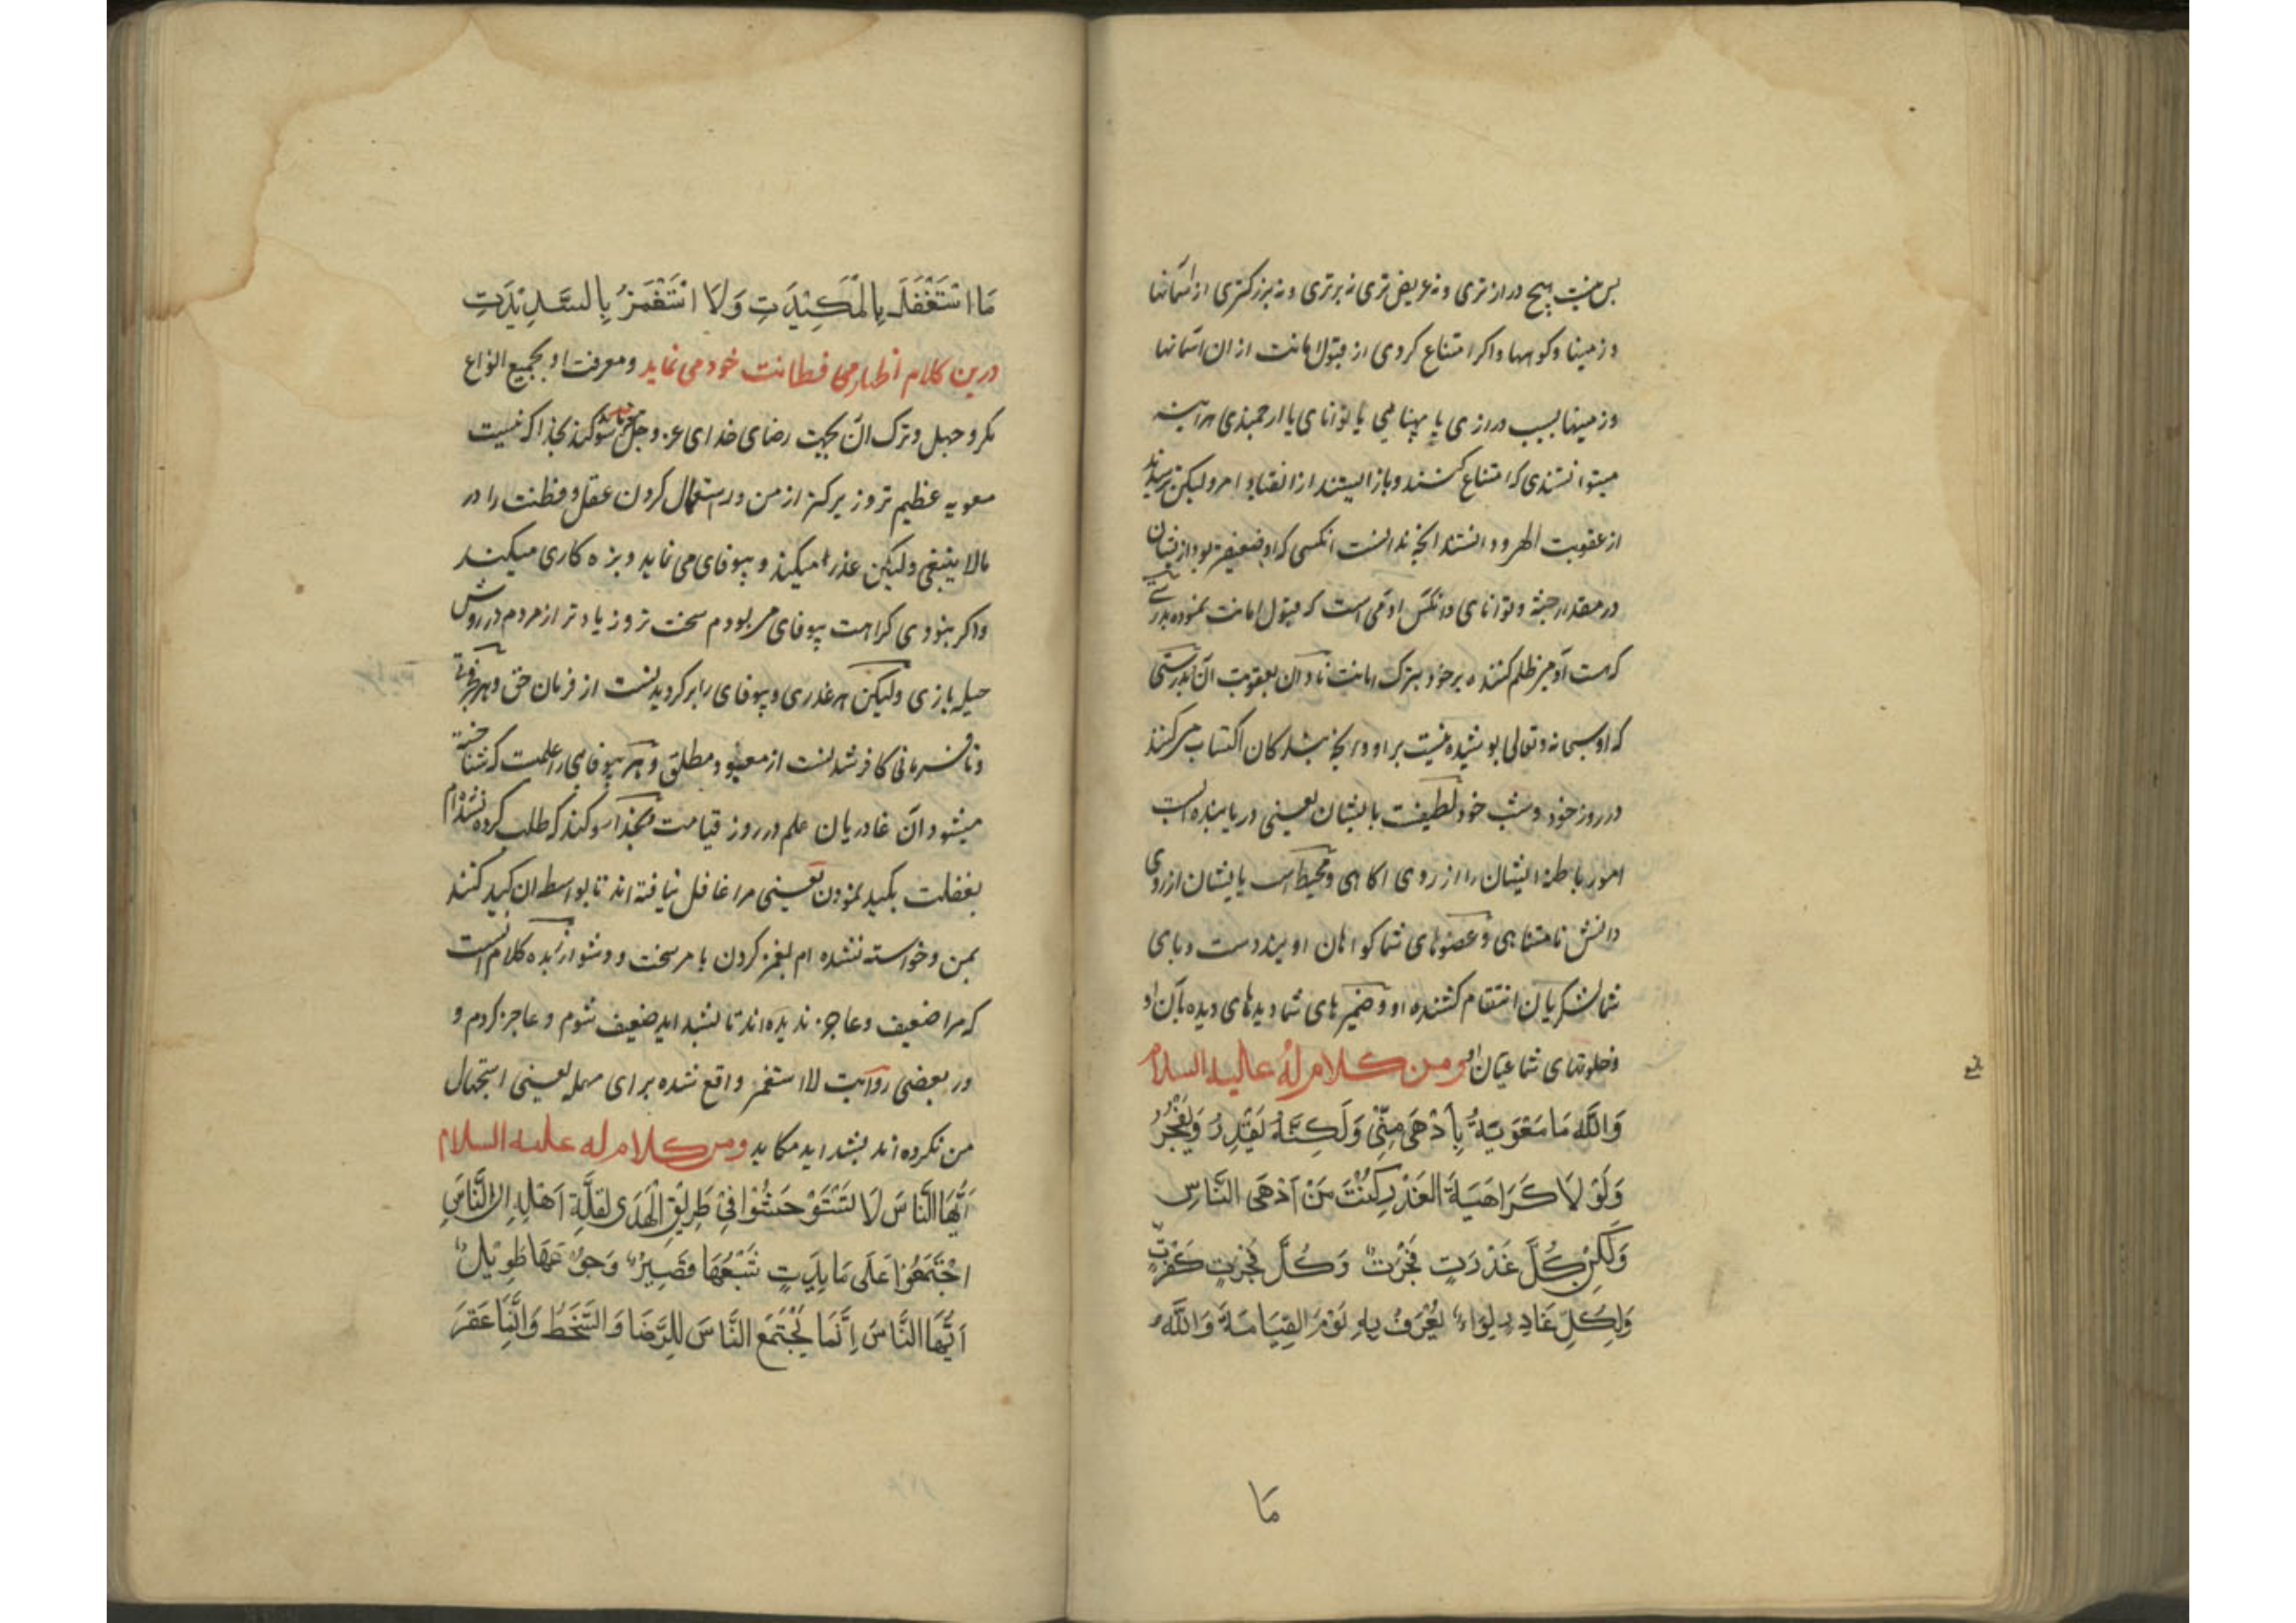 پس نیست هیچ درازتری و نه عریض تری نه برتری و نه بزرگتری از آسمانها
و زمینها و کوهها و اگر امتناع کردی از قبول امانت از ان آسمانها
و زمینها بسبب درازی یا پهنایی یا توانای یا ارجمندی هر آینه
میتوانستندی که امتناع کنند و باز ایستند از انقیاد امر ولیکن ترسیدند
از عقوبت الهی و دانستند آنچه ندانست انکسی که او ضعیفتر بود از ایشان
در مقدار جثه و توانای و انکس آدمی است که قبول امانت نموده بدرستی
که هست آدمی ظلم کننده بر خود بترک امانت نادان بعقوبت آن بدرستی
که او سبحانه و تعالی پوشیده نیست بر او آنچه بندگان اکتساب میکنند
در روز خود و شب خود لطیفست بایشان یعنی دریابنده است
امور باطنه ایشان را از روی اکاهی و محیط است بایشان از روی
دانش نامتناهی و عضوهای شما کواهان اویند دست و پای
شما لشکریان انتقام کشنده او و ضمیرهای شما دیدهای دیده بان او
و خلوتهای شما عیان او ومن كلام له عليه السلام
وَاللّٰهِ مَا مُعٰوِيَةُ بِأَدْهَى مِنِّي وَلَكِنَّهُ يَغْدِرُ وَيَفْجُرُ
وَلَوْلَا كَرَاهِيَةُ الْغَدْرِ لَكُنْتُ مِنْ أَدْهَى النَّاسِ
وَلَكِنْ كُلُّ غَدْرَتٍ فَجْرَتٌ وَكُلُّ فَجْرَتٍ كَفْرَتٌ
وَلِكُلِّ غَادِرٍ لِوَاءٌ يُعْرَفُ بِهِ يَوْمَ الْقِيَامَةِ وَاللّٰهِ
مَا
مَا اسْتَغْفَلُ بِالْمَكِيْدَتِ وَلَا اسْتَغْمَزُ بِالشَّدِيْدَتِ
درین کلام اظهار می فطانت خود می نماید و معرفت او بجمیع انواع
مکر و حیل و ترک ان بجهت رضای خدای عز و جل سوکند بخدا که نیست
معویه عظیم تر و زیرکتر از من در استعمال کردن عقل و فطنت را در
مالا ینبغی ولیکن عذر میکند و بیوفای می نماید و بزه کاری میکند
و اگر نبودی کراهت بیوفای می بودم سخت تر و زیادتر از مردم در روش
حیله بازی ولیکن هر غدری و بیوفای را بر کردیدنست از فرمان حق و هر
و نافرمانی کافر شدنست از معبود مطلق و هر بیوفای را علمست که شناخته
میشود آن غادریان علم در روز قیامت بخدا سوکند که طلب کرده نشده ام
بغفلت بکید نمودن یعنی مرا غافل نیافته اند تا بواسطه ان کید کنند
بمن و خواسته نشده ام بغمز کردن بامر سخت و دشوار زبده کلام آنست
که مرا ضعیف و عاجز ندیده اند تا بشداید ضعیف شوم و عاجز کردم و
در بعضی روایت لا استغمز واقع شده برای مهمله یعنی استجهال
من نکرده اند بشداید مکاید ومن كلام له عليه السلام
أَيُّهَا النَّاسُ لَا تَسْتَوْحِشُوا فِيْ طَرِيْقِ الْهُدَى لِقِلَّةِ أَهْلِهِ إِنَّ النَّاسَ
اجْتَمَعُوْا عَلَى مَا يِدَتٍ شِبَعُهَا قَصِيرٌ وَجُوْعُهَا طَوِيْلٌ
أَيُّهَا النَّاسُ إِنَّمَا يَجْتَمِعُ النَّاسَ لِلرِّضَا وَالسَّخَطِ وَإِنَّمَا عَقَرَ